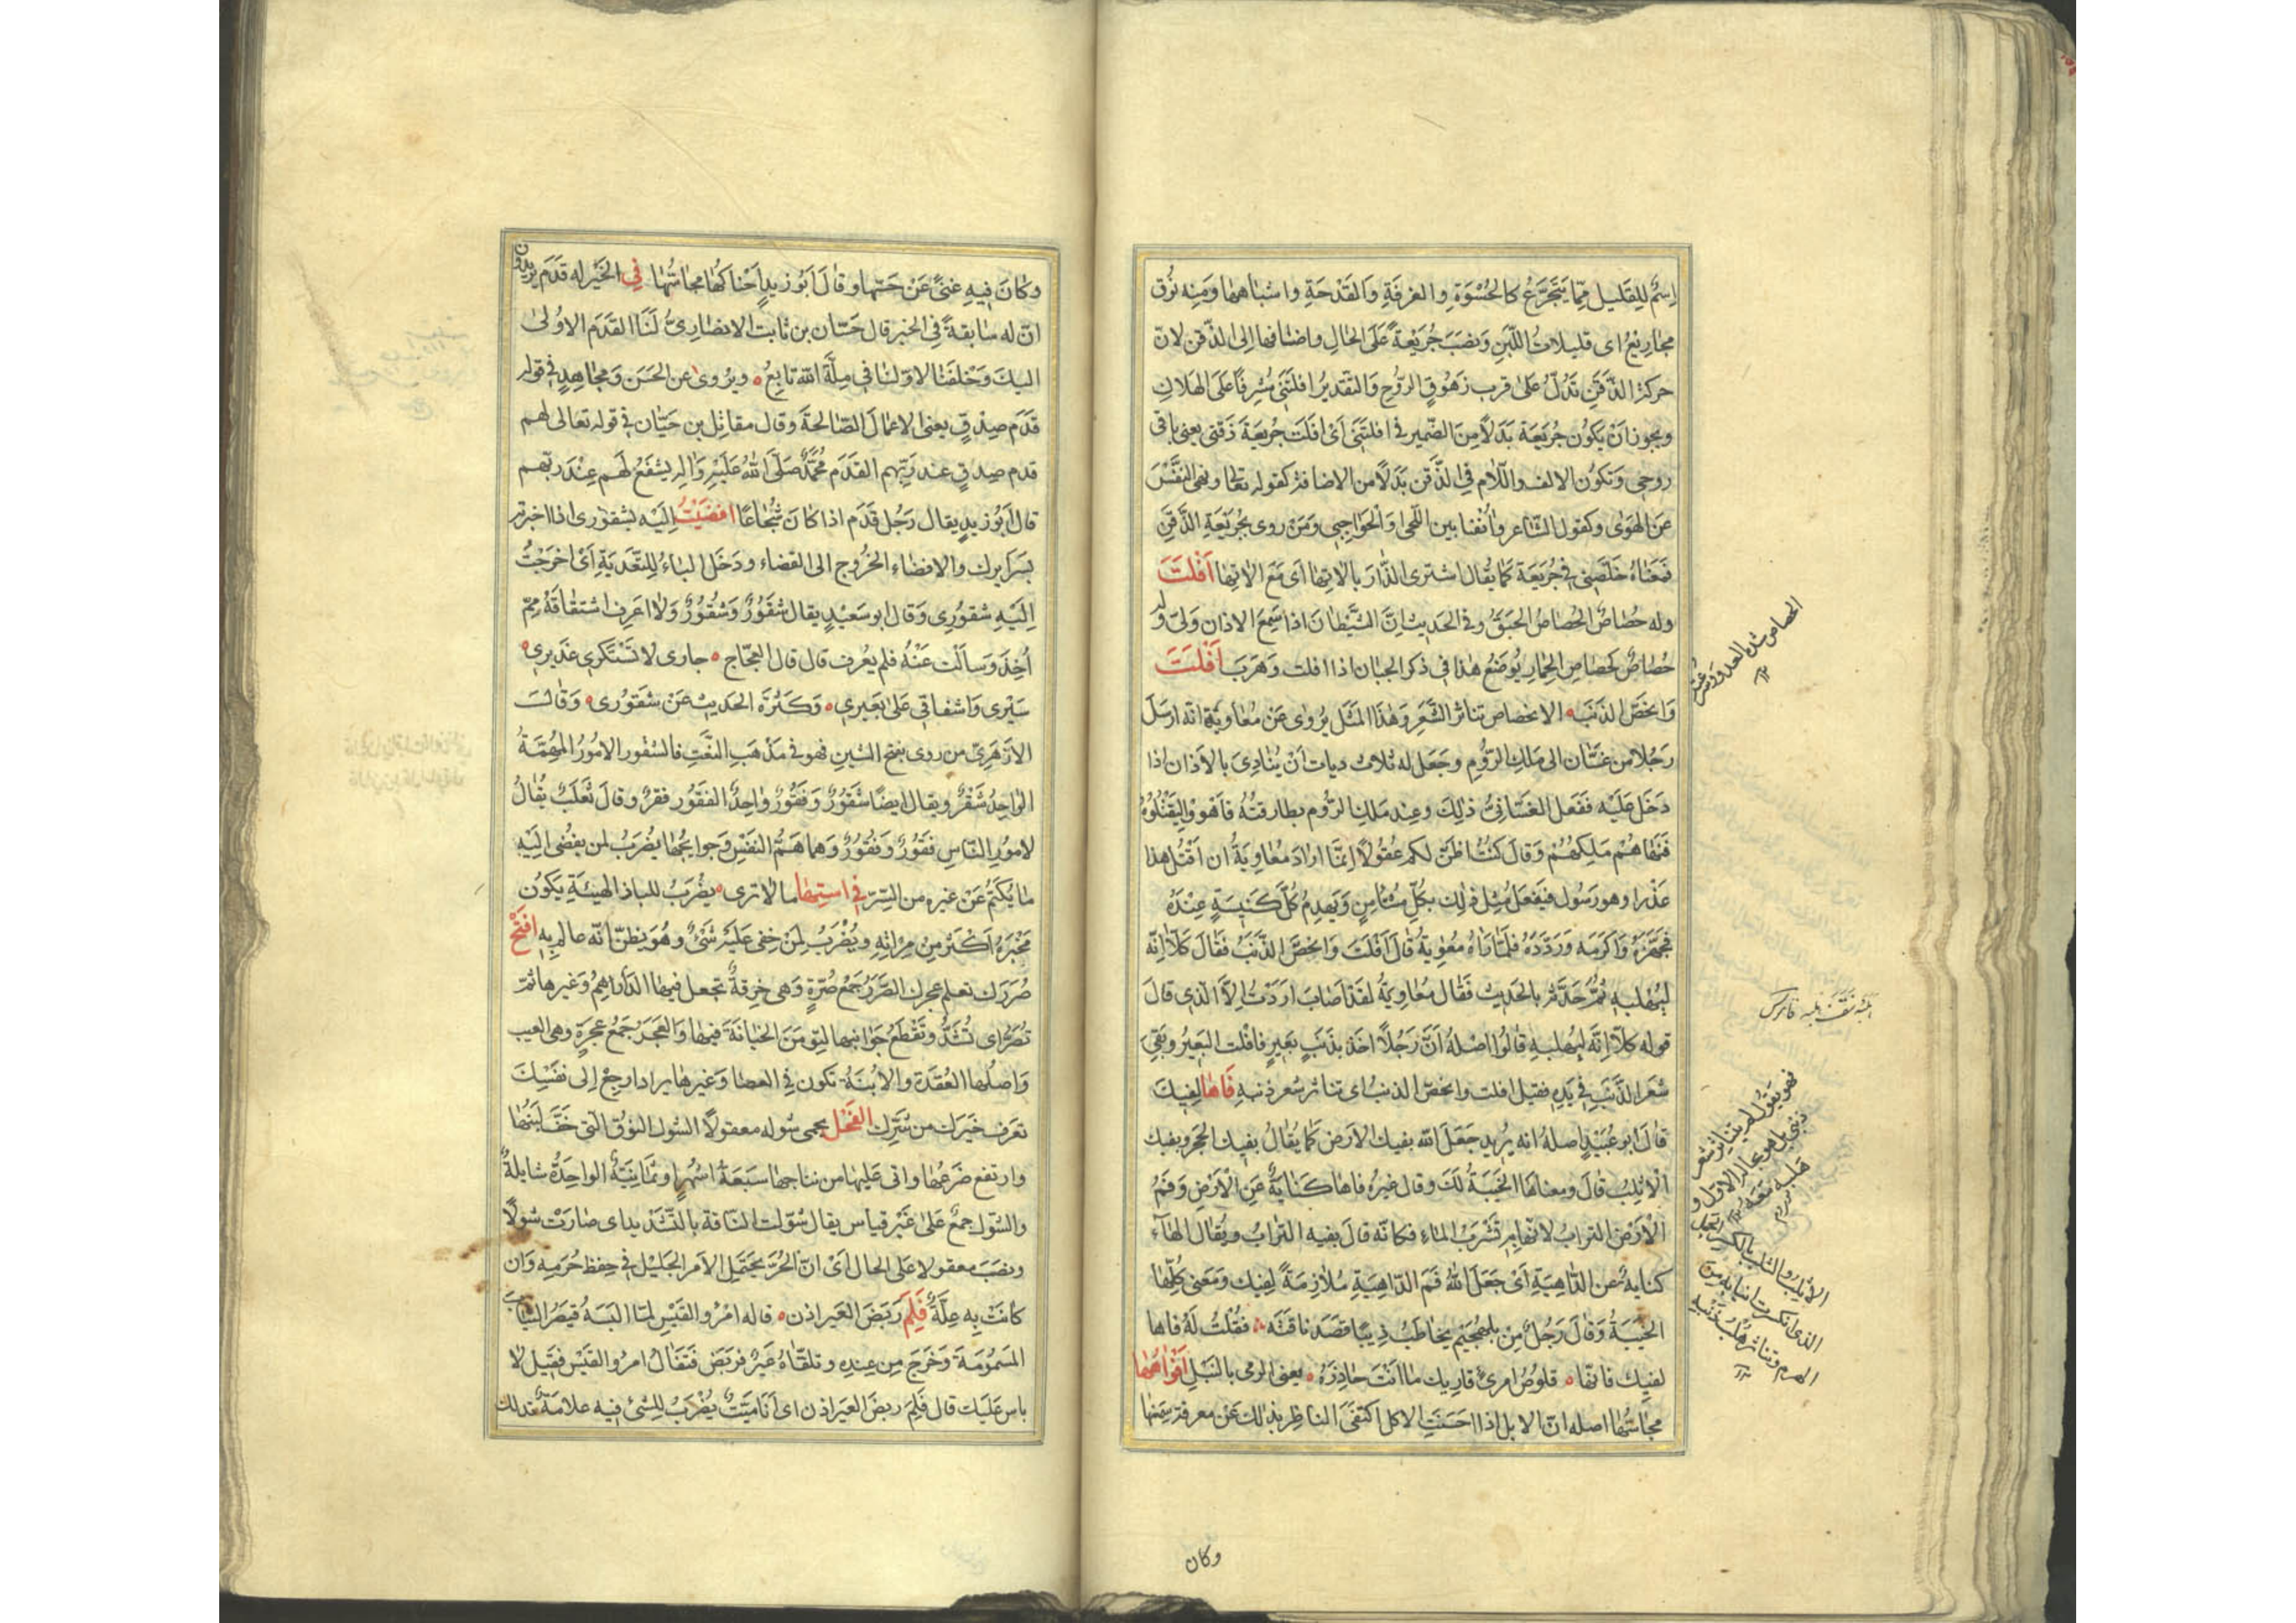 اِسْمٌ لِلِقَليل مِمّا يَتَجَرَّعُ كالحُسْوَةِ والغرفَةِ وَالقَدْحَةِ واشباهها وَمِنه نُوق
مجاريعُ اى قليلاتُ اللّبَنِ وَنصبَ جُرَيْعةً عَلَى الحالِ واضافها اِلى الذّقن لانّ
حركة الذَّقَنِ تَدُلّ عَلىٰ قرب زهُوقِ الرّوُحِ وَالتقديرُ افلتَنى مُشرِفًا عَلَى الهَلاكِ
ويجوز اَنْ يكَون جُرَيعَة بَدَلاً مِنَ الضّمير فى افلتَنى اَىْ افلَتَ جُرَيعَةَ ذَقنى يعنى باقى
روحى وَتكوُن الالف واللّام فى الذّقن بَدَلاً من الاضافة كقوله تعالى ونهى النَّفْسَ
عَنِ الهَوٰى وكقول الشّاعر وٰأنفنا بين اللّحى وَالحَواجِبِ ومَن روى بجُرَيعَةِ الذَّقَنِ
فمَعناهُ خلّصَنى فى جُرَيعَة كَما يُقال اشترى الدّارَ بآلاتِها اَى مَعَ الاتِها اَفْلَتَ
وله حُصَاصٌ الحُصَاصُ الحَبَقُ وفى الحَديث اِنَّ الشَّيْطانَ اذا سَمِعَ الاذان وَلىّ وله
حُصَاصٌ كحُصَاصِ الحِمارِ يُوضَعُ هذا فى ذكر الجبان اذا افلت وَهَرَبَ اَفْلَتَ
وَانحَصَّ الذنَبُ الانحصاص تناثر الشّعَرِ وَهٰذَا المَثَل يُروٰى عَنْ مُعاويَةَ انه ارسَلَ
رَجُلاً من غسّان الى مَلكِ الرُّومِ وجَعَل له ثلاث ديات اَنْ يُنادِىَ بالاَذان اذا
دَخَل عَلَيْه ففَعل الغَسّانىُّ ذٰلِكَ وعِند مَلكِ الرُّوم بطارقتُهُ فاَهووا ليَقتُلُوهُ
فَنَهاهُم مَلِكهُمْ وَقالَ كنتُ اظنّ لكم عُقولاً اِنمّا ارادَ مُعاوِيَةُ ان اَقتُل هذا
غَذرا وهو رَسُول فيَفعَل مثل ذٰلِك بِكلِّ مُستَأمِنٍ وَيَهدِمُ كُلّ كَنيسَةٍ عِنْدَهُ
فجهّزَهُ وَاكرَمَه وَرَدَّهُ فلَمّا رَاهُ مُعٰوِيةُ قالَ اَفلَتَ وَانحصَّ الذّنَبُ فقالَ كَلاّ اِنّه
لبهُلبِه ثمّ حَدّثه بالحَديث فقال مُعاوِيَةُ لقَد اَصَابَ ارَدتُ اِلاّ الّذِى قالَ
قوله كلاّ اِنّه لبهُلبِهِ قالوُا اصلهُ اَنَّ رَجُلاً اخَذ بذَنَبِ بَعيرٍ فافلت البَعيرُ وبقىَ
شعَر الذَّنَبِ فى يَدِهِ فقيل افلت وانحصّ الذنبُ اى تناثر شعر ذنبِهِ فَاهَا لِفِيكَ
قالَ ابو عُبَيْدٍ اصلهُ انه يُريد جَعَلَ الله بفيك الاَرضَ كَما يُقالُ بِفيك الحجر وبفيك
الاَثلِبُ قالَ ومعناها الخَيبَةُ لكَ وقال غيرهُ فاها كنايَةٌ عَنِ الاَرْضِ وَفمُ
الاَرْض التراب لانّها بِه تَشرَبُ الماءِ فكانّه قالَ بفيه التراب ويُقال الهَاء
كنايةٌ عن الدّاهِيَةِ اَىْ جَعَلَ اللهُ فَمَ الدّاهِيَةِ مُلاَزِمَةً لِفيك وَمَعنى كلِّها
الخَيبَةُ وَقالَ رَجُل مِن بلهُجَيمِ يخاطِبُ ذِيبًا قصَدَ ناقتَه فقُلتُ لَهُ فاها
لفيكَ فانّها قلوُصُ امرئٍ قاريك مَا اَنتَ حاذِرُه يعنى الرّمى بالنبَلِ اَفْواهُها
مجَاسّهَُا اصله انّ الابل اذا احسَنَتِ الاكل اكتفىَ الناظر بذلك عَنْ معرفة سِمَنها
وكان
الحصاص شدة العدو وسرعته
الهلبة نتف هلبه قاموس
فهو يقول لم يتناثر شعر
ذنبى بل هو بحاله الاول و
هلبه معه
وكَانَ فِيهِ غنىً عَنْ جَسّها وقالَ اَبُو زيدٍ اَحْناكُها مجَاسُّهَا فى الخَيْرِ له قَدَم يريدون
انّ له سَابقةً فى الخير قال حَسّان بن ثابت الانصَارِىُّ لَنَا القَدَم الاوُلىٰ
اليك وَخلفَنا لاوّلنا فى مِلّةِ الله تابعُ ويُروىٰ عن الحَسَن وَمجاهِدٍ فى قوله
قَدَم صِدْقٍ يعنى الاعمالَ الصّالحةَ وقال مقاتِل بن حَيّان فى قوله تعَالى لهم
قدم صِدقٍ عند رَبّهم القَدَم محُمَّدٌ صَلّى اللهُ عَلَيْهِ وَالِه يشفَعُ لَهم عِنْدَ ربّهم
قال اَبوُ زيدٍ يقال رَجُل قَدَم اذا كانَ شُجاعًا اَفضَيْتُ اِليَه بشقورى اذا اخبرته
بسَرايرك والافضاء الخرُوج الى الفضاء ودَخَل الباءُ لِلتّعَديَةِ اَىْ اخرَجْتُ
اِلَيْهِ شقوُرِى وَقالَ ابو سَعيْدٍ يقال شَقوُرٌ وَشُقوُرٌ وَلا اعَرِف اشتقاقهُ مِمّ
اُخِذَ وَسالتُ عَنْهُ فلم يُعرف قال قال العجّاج جارى لا تَسْتَنكرى عَذيرى
سَيْرى وَاشفاقى عَلىٰ بعَيرى وَكثرة الحَديث عَنْ شقوُرى وَقالَ
الازهَرِىّ من روى بفتح الشين فهو فى مَذْهَبِ النّعَتِ فالشقور الامُورُ المُهِمّةُ
الواحِدُ شَقرٌ ويقال ايضًا شَقورٌ وَفقُورٌ وٰاحِدُ الفقور فقرٌ وقالَ ثعلَبٌ يُقالُ
لامُورِ النّاسِ فقَوُرٌ وَفُقوُرٌ وَهما هَمُّ النفسِ وَحوايجُها يضُرَبُ لمن يفُضى اِليْهِ
مَا يُكتَمُ عَن غيرِه من السّرّ فى استِها مَا لا ترى يضْرَبُ للباذ الهيئَةِ يَكوُن
مَخبَرهُ اَكثرَ مِن مِرْاتِهِ ويُضْرَبُ لِمَنْ خِفى عَليْه شَىٌ وهُوَ يظنّ انّه عالم بِه افتَحْ
صُرَرَك تعلم عجرك الصّررُ جمَعُ صُرّةٍ وَهى خِرقةٌ تجعل فيها الدّراهِمُ وَغيرها ثمّ
تُصَرُّ اى تُشَدُّ وتقَطَعُ جَوَانبها لتؤمَن الخيانَة فيها وَالعجَرُ جمعُ عجرَةٍ وهى العيب
وَاصلُها العُقدَة والابُنَةُ تكون فى العصا وَغيرها يراد ارجِعْ اِلى نفسِك
تعَرف خيَرك من شرّك الفَحْلُ يحمى شوله معقولاً الشّول النوُق الّتى خَفّ لبنهُا
وارتفع ضَرعُها واتى عَليْها من نتاجها سَبعَةُ اَشهُرٍ اَو ثمانِيَةٌ الواحِدَةُ شايلةٌ
والشَّول جمعٌ عَلىٰ غَيْر قياس يقال شوّلت النّاقة بالتّشديد اى صَارَتْ شولاً
ونصَبَ معقولا عَلى الحال اَىْ انّ الحُرّ يحتَمل الاَمر الجَليْل فى حِفظ حُرَمِه وَان
كانَتْ بِه عِلّةٌ فَلِمَ رَبَضَ العَير اذن قاله امْرُؤ القَيْسِ لمّا البَسَهُ قيصَرُ الثياب
المَسمُومَة وَخَرَجَ مِن عِندِهِ وتلقّاهُ عَيرٌ فربَضَ فتفالُ امرُؤ القَيْس فقيَل لا
باس عَلَيْك قال فَلِمَ ربضَ العَير اذن اى اَنَا ميّتٌ يُضْرَبُ للشّئ فيه علامَةٌ تدلك